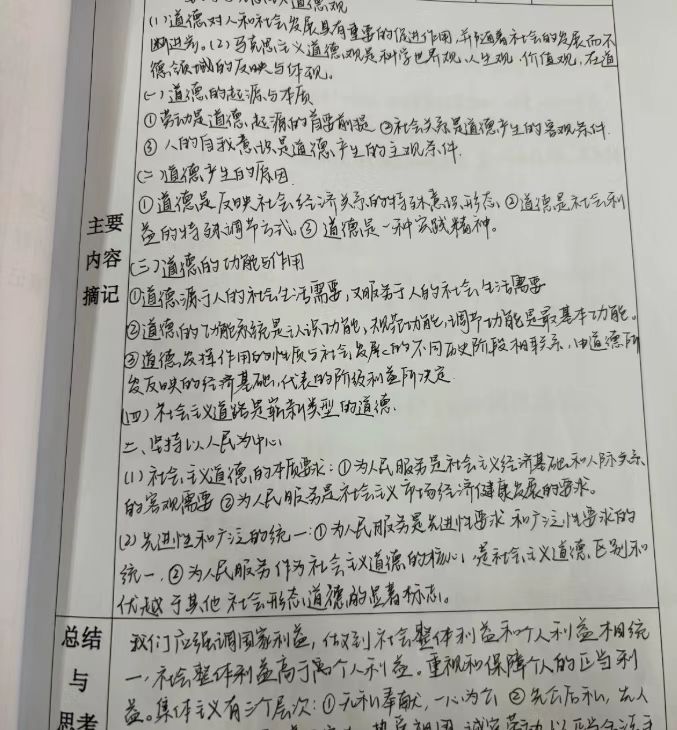 道德观
(1)道德对人和社会发展具有重要的促进作用,并随着社会的发展而不
断进步。(2)马克思主义道德观是科学世界观、人生观、价值观,在道
德领域的反映与体现。
(一)道德的起源与本质
①劳动是道德起源的首要前提 ②社会关系是道德产生的客观条件
③ 人的自我意识是道德产生的主观条件.
(二)道德产生的原因
①道德是反映社会经济关系的特殊意识形态 ②道德是社会利
益的特殊调节方式。③ 道德是一种实践精神。
主要
内容
摘记
(三)道德的功能与作用
①道德源于人的社会生活需要,又服务于人的社会生活需要
②道德的功能系统是认识功能,规范功能,调节功能是最基本功能。
③道德发挥作用的性质与社会发展的不同历史阶段相联系,由道德所
反映的经济基础,代表的阶级利益所决定.
(四)社会主义道路是崭新类型的道德.
二、坚持以人民为中心
(1)社会主义道德的本质要求:①为人民服务是社会主义经济基础和人际关系
的客观需要 ②为人民服务是社会主义市场经济健康发展的要求。
(2)先进性和广泛的统一:①为人民服务是先进性要求和广泛性要求的
统一.②为人民服务作为社会主义道德的核心,是社会主义道德区别和
优越于其他社会形态道德的显著标志。
总结
与
思考
我们应强调国家利益,做到社会整体利益和个人利益相统
一,社会整体利益高于离个人利益。重视和保障个人的正当利
益。集体主义有三个层次:①无私奉献,一心为公 ②先公后私,先人